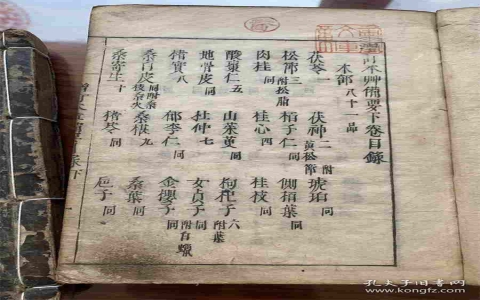 本艸備要下卷目錄
木部八十一品
茯苓一 茯神二 附黃松節 琥珀同
松節三 附松脂 柏子仁同 側柏葉同
肉桂 桂心四 桂枝同
酸棗仁五 山茱萸同 枸杞子六 附葉
地骨皮同 杜仲七 女貞子同 附白蠟
楮實八 郁李仁同 金櫻子同
桑白皮同 附桑椹九 桑葉同
桑寄生十 猪苓同 巵子同
孔夫子旧书网
www.kongfz.com